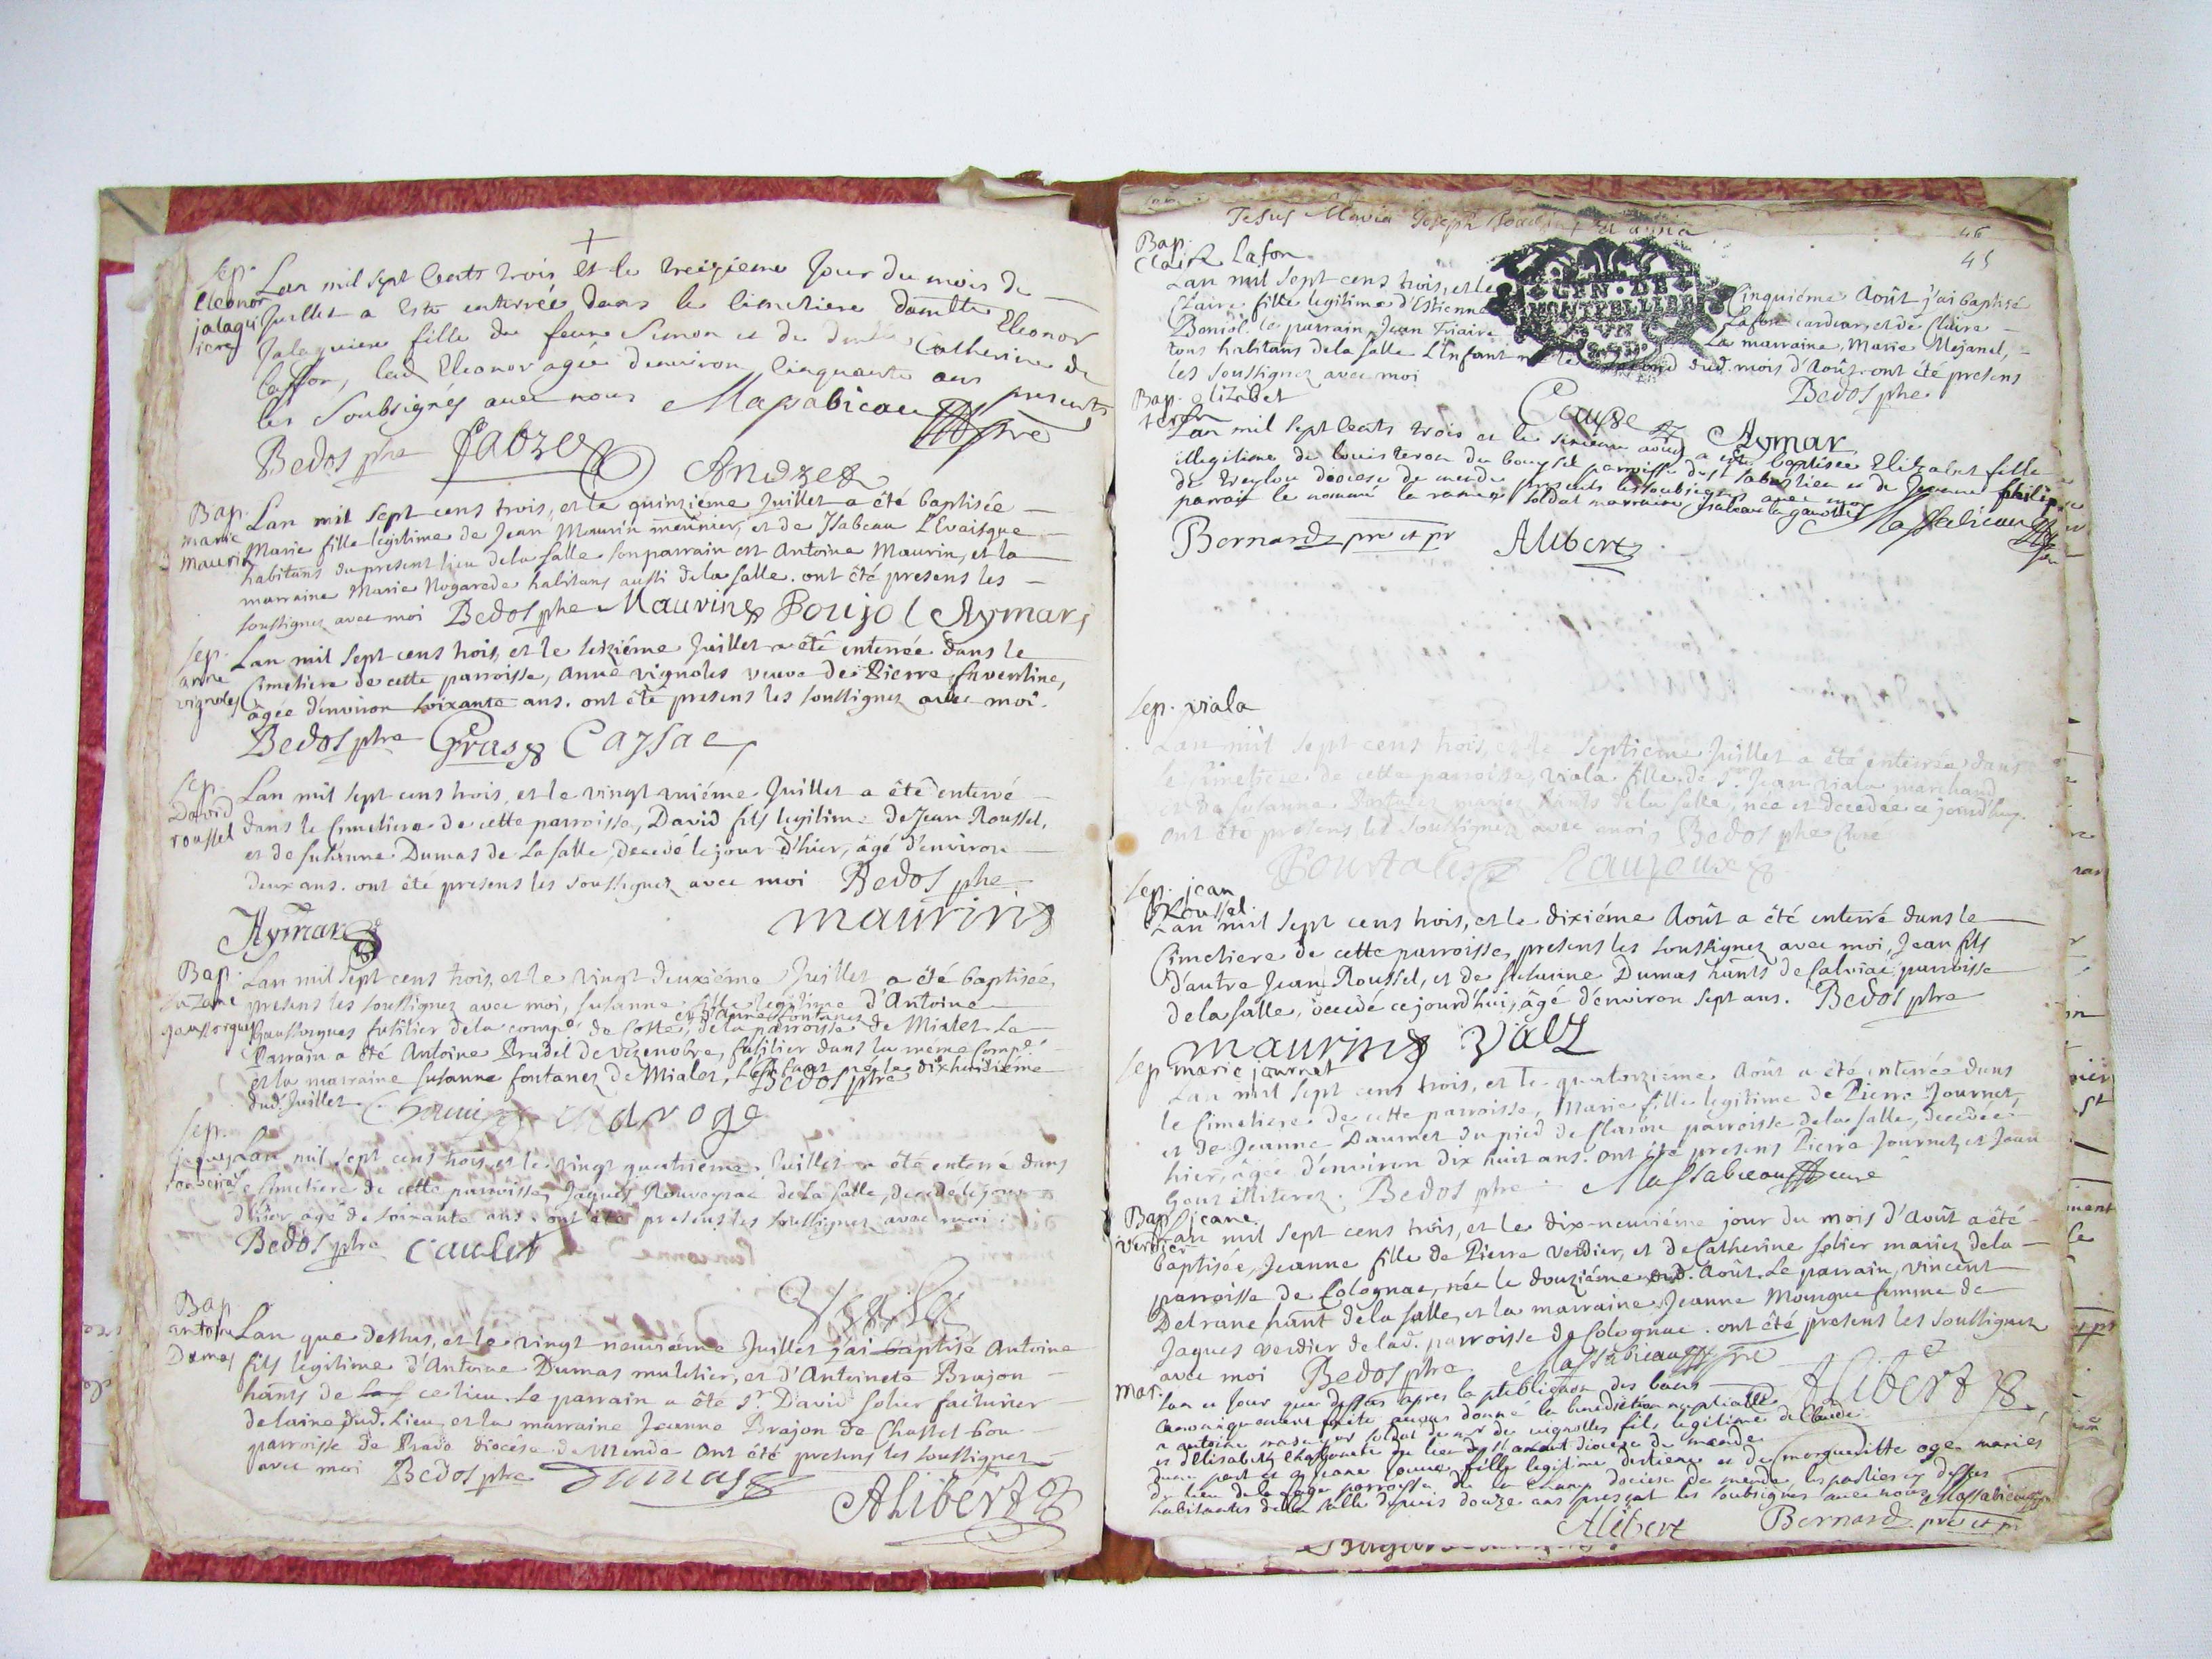 +
Sep.
Eleonor
jalaguiere
Lan mil sept Cents trois et le treizieme Jour du mois de
Juillet a Esté enterrée dans le cimetiere damlle Eleonor
Jalaguiere fille du feu Simon et de Catherine de
laffon, lad Eleonor agée d'environ Cinquante ans presents
les Soubsignés avec nous Massabieau ptre
Bedos ptre Fabre Andre
Bap.
marie
maurin
Lan mil sept cens trois, et le quinzieme Juillet a été baptisée
Marie fille legitime de Jean Maurin meunier, et de Isabeau L'Evaisque
habitans du present lieu de la salle son parrain est Antoine Maurin, et la
marraine Marie Nogarede habitans aussi de la salle. ont été presens les
soussignez avec moi Bedos ptre Maurin Poujol Aymar
Sep.
anne
vignoles
Lan mil sept cens trois, et le seiziéme Juillet a été enterrée dans le
Cimetiere de cette parroisse, Anne vignoles veuve de Pierre
âgée d'environ soixante ans. ont été presens les soussignez avec moi.
Bedos ptre Gras Cayssac
Sep.
David
roussel
Lan mil sept cens trois, et le vingt uniéme Juillet a été enterré
dans le Cimetiere de cette parroisse, David fils legitime de Jean Roussel,
et de Susanne Dumas de La salle, decedé le jour d'hier, âgé d'environ
deux ans. ont été presens les soussignez avec moi Bedos ptre
Aymar maurin
Bap.
Suzane
gaussorgues
Lan mil sept cens trois, et le vingt deuxiéme Juillet a été baptisée,
presens les soussignez avec moi, Susanne fille legitime d'Antoine
Gaussorgues fusilier de la compe de Coste, et d'Anne fontanes de la parroisse de Mialet. Le
Parrain a été Antoine Pradel de Vezenobre, fusilier dans la même Compe
et la marraine Susanne fontanez de Mialet, née le dixhuitiéme
dud. Juillet Bedos ptre
Sep.
jaques
Lan mil sept cens trois, et le vingt quatriéme Juillet a été enterré dans
le Cimetiere de cette parroisse, Jaques Rouveyrac de La salle, decedé le jour
d'hier âgé de soixante ans. ont été presens les soussignez avec moi.
Bedos ptre Caulet
Bap.
antoine
Dumas
Lan que dessus, et le vingt neuviéme Juillet j'ai baptisé Antoine
fils legitime d'Antoine Dumas muletier, et d'Antoinete Brajon
hants de ce lieu. Le parrain a été sr David Solier facturier
de laine dud. Lieu, et la marraine Jeanne Brajon de Chastel bou
parroisse de Prade diocése de Mende Ont été presens les soussignez
avec moi Bedos ptre Dumas
Alibert
Jesus Maria Joseph
46
45
Bap.
Claire Lafon
GEN. DE
MONTPELLIER
Lan mil sept cens trois, et le Cinquiéme Août j'ai baptisé
Claire fille legitime d'Estienne Lafon cardeur, et de Claire
Boniol. le parrain Jean Triaire La marraine, Marie Mejanel,
tous habitans de la salle L'Enfant dud. mois d'Août. ont été presens
les soussignez avec moi Bedos ptre
Causse Aymar
Bap. Elizabet
teron
Lan mil sept Cents trois et le sixieme aoust a esté baptisée Elizabet fille
illegitime de Louis teron du parroisse de st sabastien et de Jeanne philip
diocese de mende presents les soubsignés avec moy
parrain le nommé la ramée soldat marraine
Massabieau ptre
Bernard pre et pr Alibert
Sep. viala
Lan mil sept cens trois, et le septiéme Juillet a été enterrée dans
le Cimetiere de cette parroisse, viala fille de sr Jean viala marchand
et de Susanne Portalez mariez hants de la salle, née et decedée ce jourd'huy.
ont été presens les soussignez avec moi, Bedos ptre Curé
Pourtales
Sep. jean
Roussel.
Lan mil sept cens trois, et le dixiéme Août a été enterré dans le
Cimetiere de cette parroisse, presens les soussignez avec moi, Jean fils
d'autre Jean Roussel, et de Susanne Dumas hants de Calviac parroisse
de la salle, decedé ce jourd'hui, âgé d'environ sept ans. Bedos ptre
maurin valz
Sep. marie journet
Lan mil sept cens trois, et le quatorziéme Août a été enterrée dans
le Cimetiere de cette parroisse, Marie fille legitime de Pierre Journet,
et de Jeanne Daumet du pied de parroisse de la salle, decedée
hier, âgée d'environ dix huit ans. ont été presens Pierre Journet, et Jean
illiterez. Bedos ptre. Massabieau cure
Bap. jeane
verdier
Lan mil sept cens trois, et le dix-neuviéme jour du mois d'Août a été
baptisée, Jeanne fille de Pierre Verdier, et de Catherine Solier mariez de la
parroisse de Colognac, née le douziéme dud. Août. Le parrain, Vincent
Delrane hant de la salle, et la marraine Jeanne Moingue femme de
Jaques verdier de lad. parroisse de Colognac. ont été presens les soussignez
avec moi Bedos ptre. Massabieau ptre
Alibert
Mar.
Lan et Jour que dessus apres la publication des bans
canoniquement faite avons donné la benediction nuptialle
a antoine soldat de mr de vignolles fils legitime de Claude
et d'Elisabet du lieu de st amant diocese de mende
d'une part et Jeane fille legitime d'estiene et de margueritte oge mariés
du lieu de parroisse de diocese de mende les parties cy dessus
habitantes de la salle depuis douze ans present les soubsignes avec nous Massabieau
Alibert Bernard pre et pr